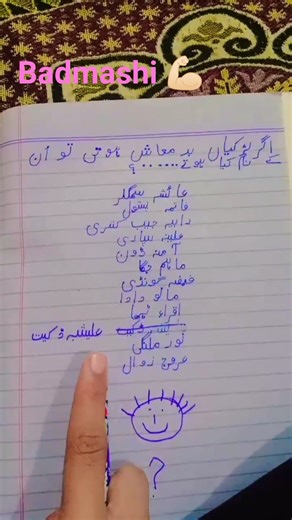 Badmashi 💪🏻
اگر لڑکیاں بدمعاش ہوتی تو ان
کے نام کیا ہوتے ......؟
عائشہ سمگلر
فاطمہ پسٹل
رابیہ جیب کتری
علینہ شکاری
آمنہ ڈون
ماہم جگا
حفضہ غونڈی
مانو دادا
اقراء ٹھا
علیشبہ ڈکیت
نور ملنگی
عروج زوال
?